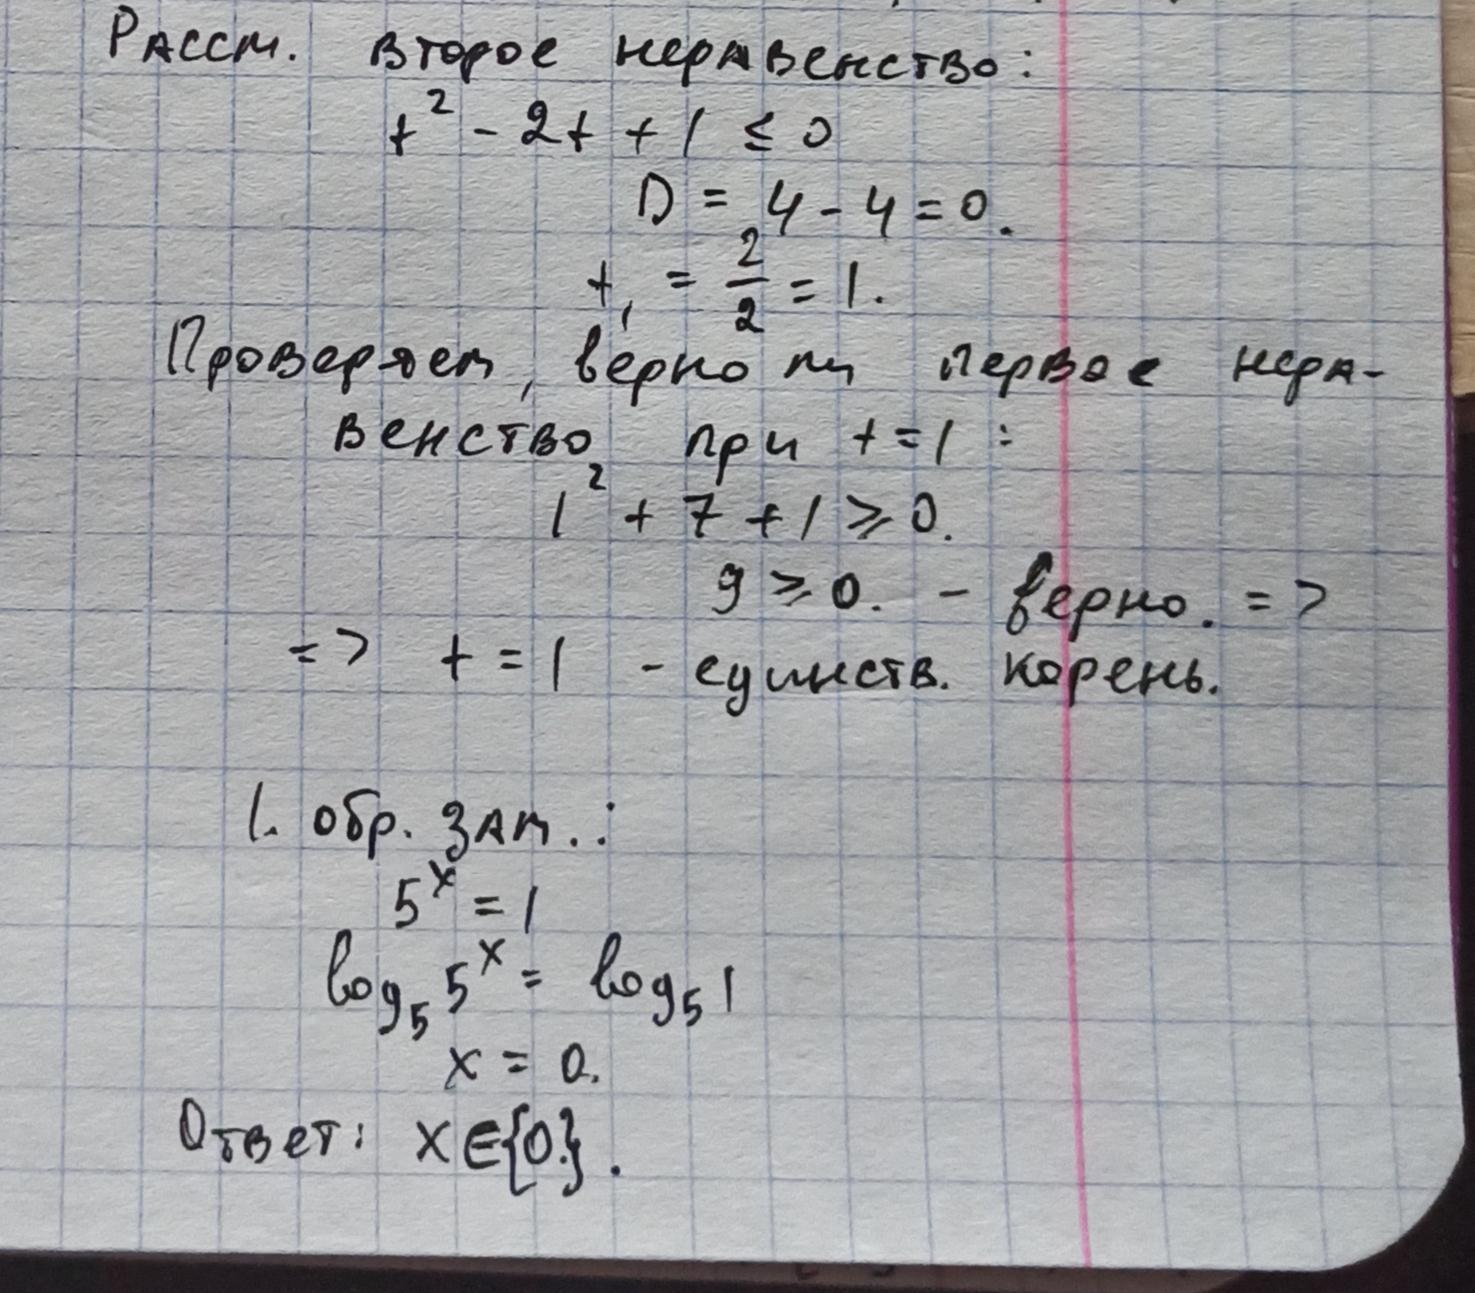 Рассм. второе неравенство:
t² - 2t + 1 ≤ 0
D = 4 - 4 = 0.
t₁ = 2/2 = 1.
Проверяем, верно ли первое нера-
венство при t = 1:
1² + 7 + 1 ⩾ 0.
9 ⩾ 0. - верно. =>
=> t = 1 - единств. корень.
1. обр. зам.:
5ˣ = 1
log₅ 5ˣ = log₅ 1
x = 0.
Ответ: x ∈ {0.}.